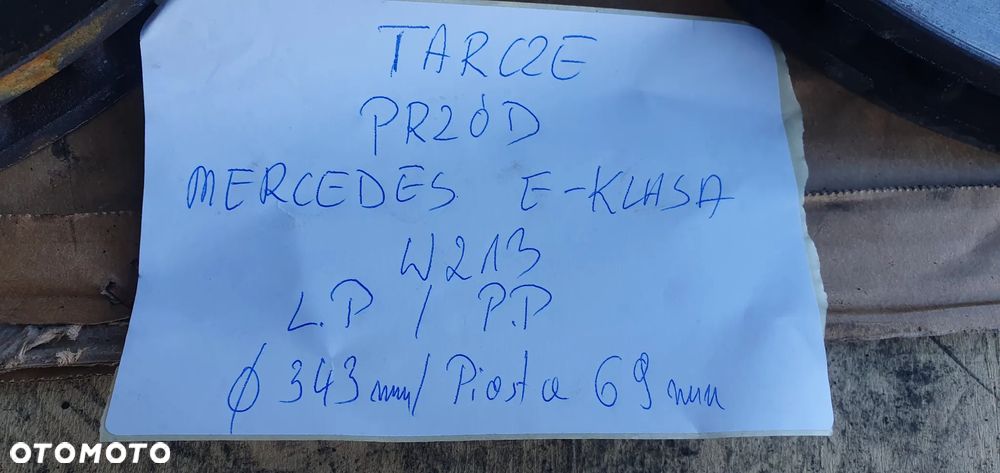 TARCZE
PRZÓD
MERCEDES E-KLASA
W213
L.P / P.P
Ø 343 mm / Piasta 69 mm
OTOMOTO